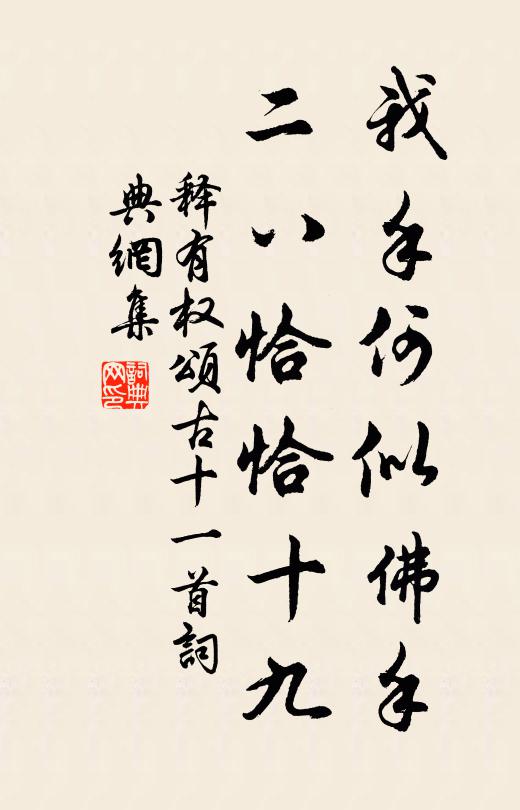 我手何似佛手
二八恰恰十九
释有权頌古十一首詞
典網集
詞典
网印